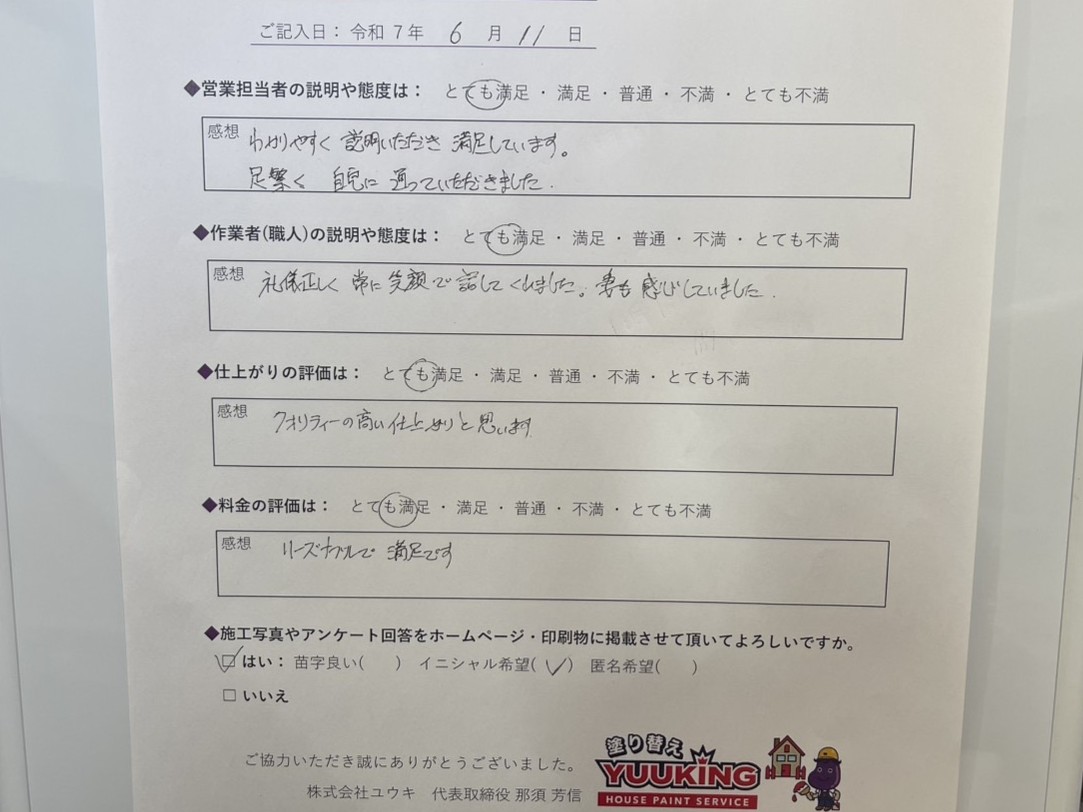 ご記入日：令和 7 年 6 月 11 日
◆営業担当者の説明や態度は： とても満足・満足・普通・不満・とても不満
感想 わかりやすく 説明いただき 満足しています。
足繁く 自宅に 通っていただきました.
◆作業者(職人)の説明や態度は： とても満足・満足・普通・不満・とても不満
感想 礼儀正しく 常に 笑顔で 話してくれました。妻も 感心していました.
◆仕上がりの評価は： とても満足・満足・普通・不満・とても不満
感想 クオリティーの高い仕上がりと思います
◆料金の評価は： とても満足・満足・普通・不満・とても不満
感想 リーズナブルで 満足です
◆施工写真やアンケート回答をホームページ・印刷物に掲載させて頂いてよろしいですか。
☑ はい：苗字良い( ) イニシャル希望(✓) 匿名希望( )
□ いいえ
ご協力いただき誠にありがとうございました。
株式会社ユウキ 代表取締役 那須 芳信
塗り替え
YUUKING
HOUSE PAINT SERVICE